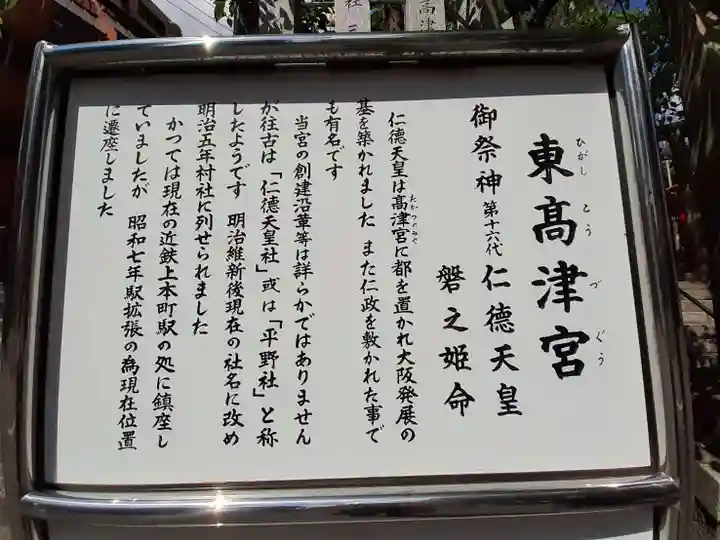 東高津宮
ひがしこうづぐう
御祭神 第十六代 仁徳天皇
磐之姫命
仁徳天皇は髙津宮に都を置かれ大阪発展の
たかつのみや
基を築かれました また仁政を敷かれた事で
も有名です
当宮の創建沿革等は詳らかではありません
が往古は「仁徳天皇社」或は「平野社」と称
したようです 明治維新後現在の社名に改め
明治五年村社に列せられました
かつては現在の近鉄上本町駅の処に鎮座し
ていましたが 昭和七年駅拡張の為現在位置
に遷座しました
社三
高津